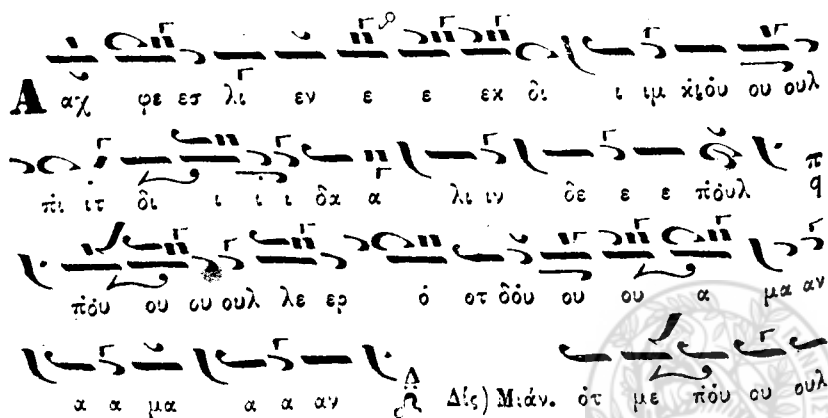 Α αχ φε εσ λι εν ε ε εκ δι ι ιμ κιου ου ουλ
πι ιτ δι ι ι ι δα α λι ιν δε ε ε πουλ π q
που ου ου ουλ λε ερ ο οτ δου ου ου α μα αν
α α μα α α αν Δ Δίς) Μιάν. ότ με που ου ουλ